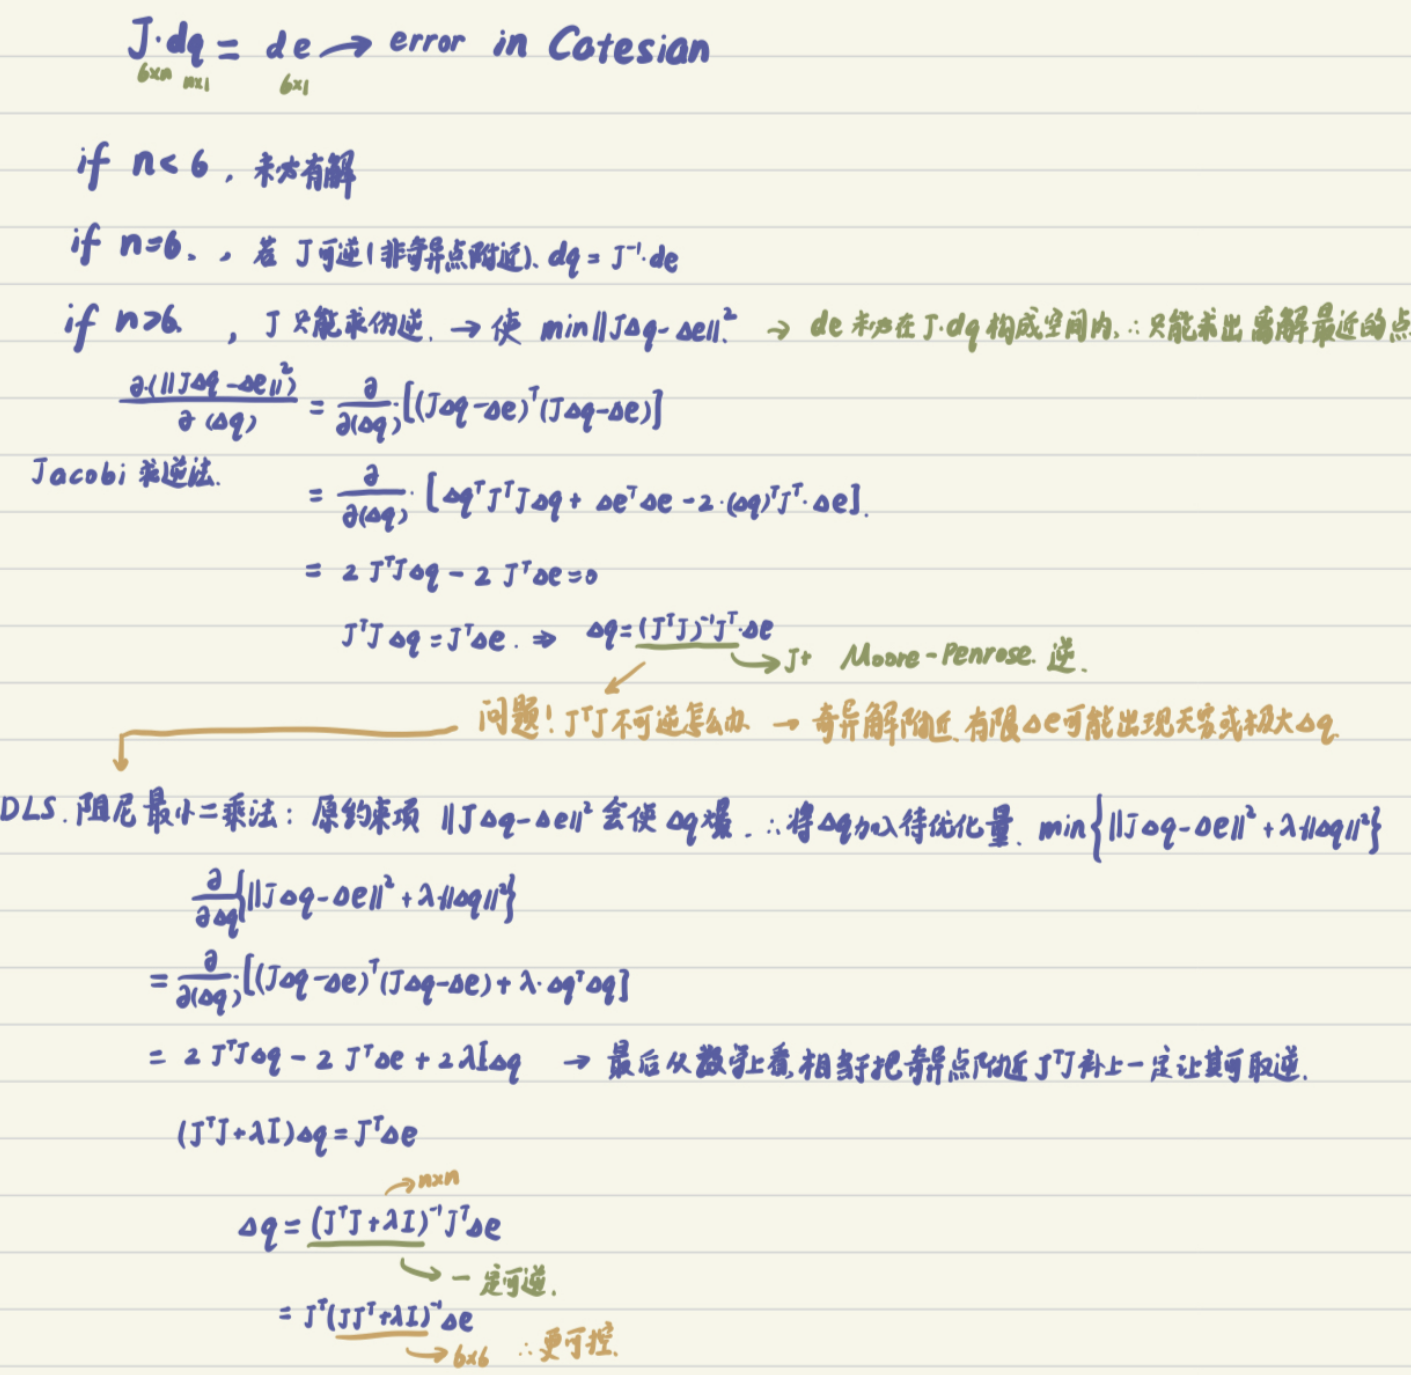 J·dq = de → error in Catesian
6×n n×1 6×1
if n<6, 未必有解
if n=6., 若 J可逆(非奇异点附近). dq = J⁻¹·de
if n>6. , J 只能求伪逆. → 使 min||JΔq-Δe||². → de 未必在J·dq构成空间内, ∴只能求出离解最近的点
∂·(||JΔq-Δe||²)/∂(Δq) = ∂/∂(Δq)·[(JΔq-Δe)ᵀ(JΔq-Δe)]
Jacobi 求逆法. = ∂/∂(Δq)·[ΔqᵀJᵀJΔq + ΔeᵀΔe - 2·(Δq)ᵀJᵀ·Δe].
= 2JᵀJΔq - 2JᵀΔe = 0
JᵀJΔq = JᵀΔe. ⇒ Δq = (JᵀJ)⁻¹Jᵀ·Δe
→ J+ Moore-Penrose. 逆.
问题! JᵀJ不可逆怎么办 → 奇异解附近, 有限Δe可能出现无穷或极大Δq.
DLS. 阻尼最小二乘法: 原约束项 ||JΔq-Δe||² 会使Δq爆. ∴将Δq加入待优化量. min{||JΔq-Δe||²+λ·||Δq||²}
∂/∂Δq{||JΔq-Δe||²+λ·||Δq||²}
= ∂/∂(Δq)·[(JΔq-Δe)ᵀ(JΔq-Δe)+λ·ΔqᵀΔq]
= 2JᵀJΔq - 2JᵀΔe + 2λIΔq → 最后从数学上看, 相当于把奇异点附近JᵀJ补上一定让其可取逆.
(JᵀJ+λI)Δq = JᵀΔe
→ n×n
Δq = (JᵀJ+λI)⁻¹JᵀΔe
→ 一定可逆.
= Jᵀ(JJᵀ+λI)⁻¹Δe
→ 6×6 ∴更可控.